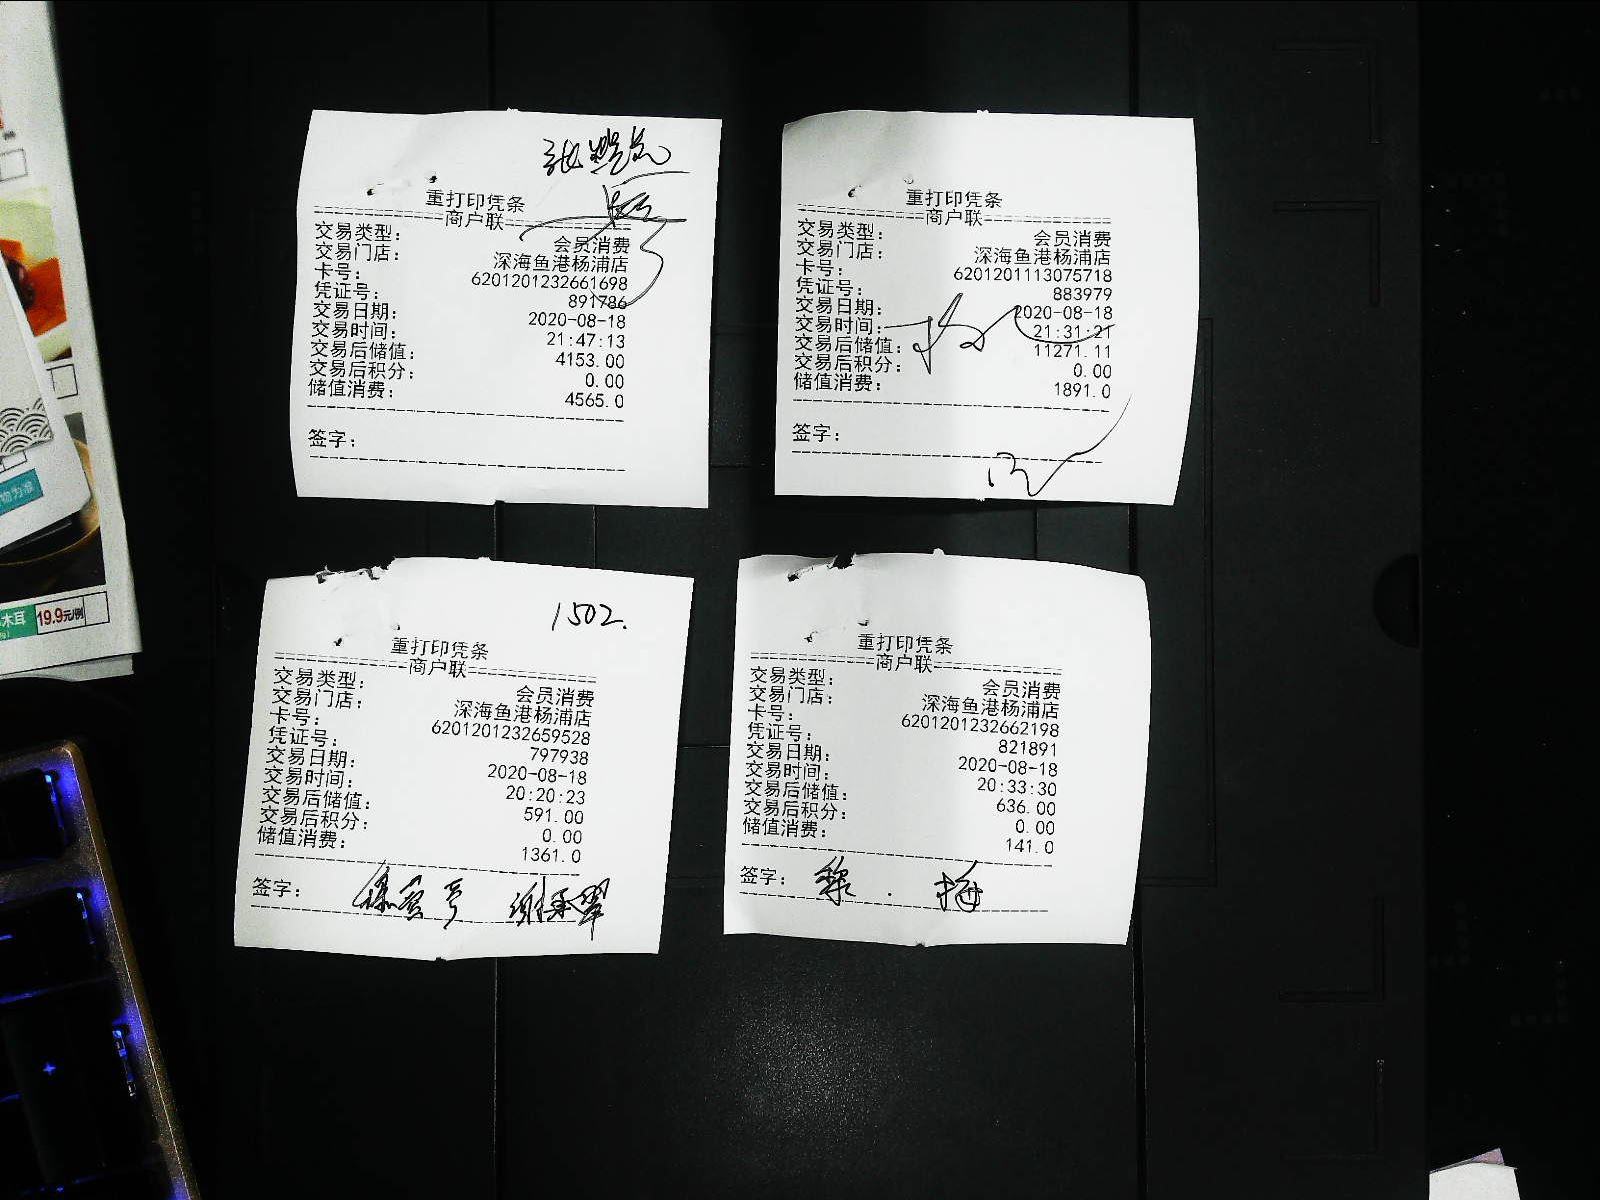 重打印凭条
商户联
交易类型： 会员消费
交易门店： 深海鱼港杨浦店
卡号： 6201201232661698
凭证号： 891786
交易日期： 2020-08-18
交易时间： 21:47:13
交易后储值： 4153.00
交易后积分： 0.00
储值消费： 4565.0
签字：
重打印凭条
商户联
交易类型： 会员消费
交易门店： 深海鱼港杨浦店
卡号： 6201201113075718
凭证号： 883979
交易日期： 2020-08-18
交易时间： 21:31:21
交易后储值： 11271.11
交易后积分： 0.00
储值消费： 1891.0
签字：
1502.
重打印凭条
商户联
交易类型： 会员消费
交易门店： 深海鱼港杨浦店
卡号： 6201201232659528
凭证号： 797938
交易日期： 2020-08-18
交易时间： 20:20:23
交易后储值： 591.00
交易后积分： 0.00
储值消费： 1361.0
签字：
重打印凭条
商户联
交易类型： 会员消费
交易门店： 深海鱼港杨浦店
卡号： 6201201232662198
凭证号： 821891
交易日期： 2020-08-18
交易时间： 20:33:30
交易后储值： 636.00
交易后积分： 0.00
储值消费： 141.0
签字： 黎.梅
物为准
木耳 19.9元/例